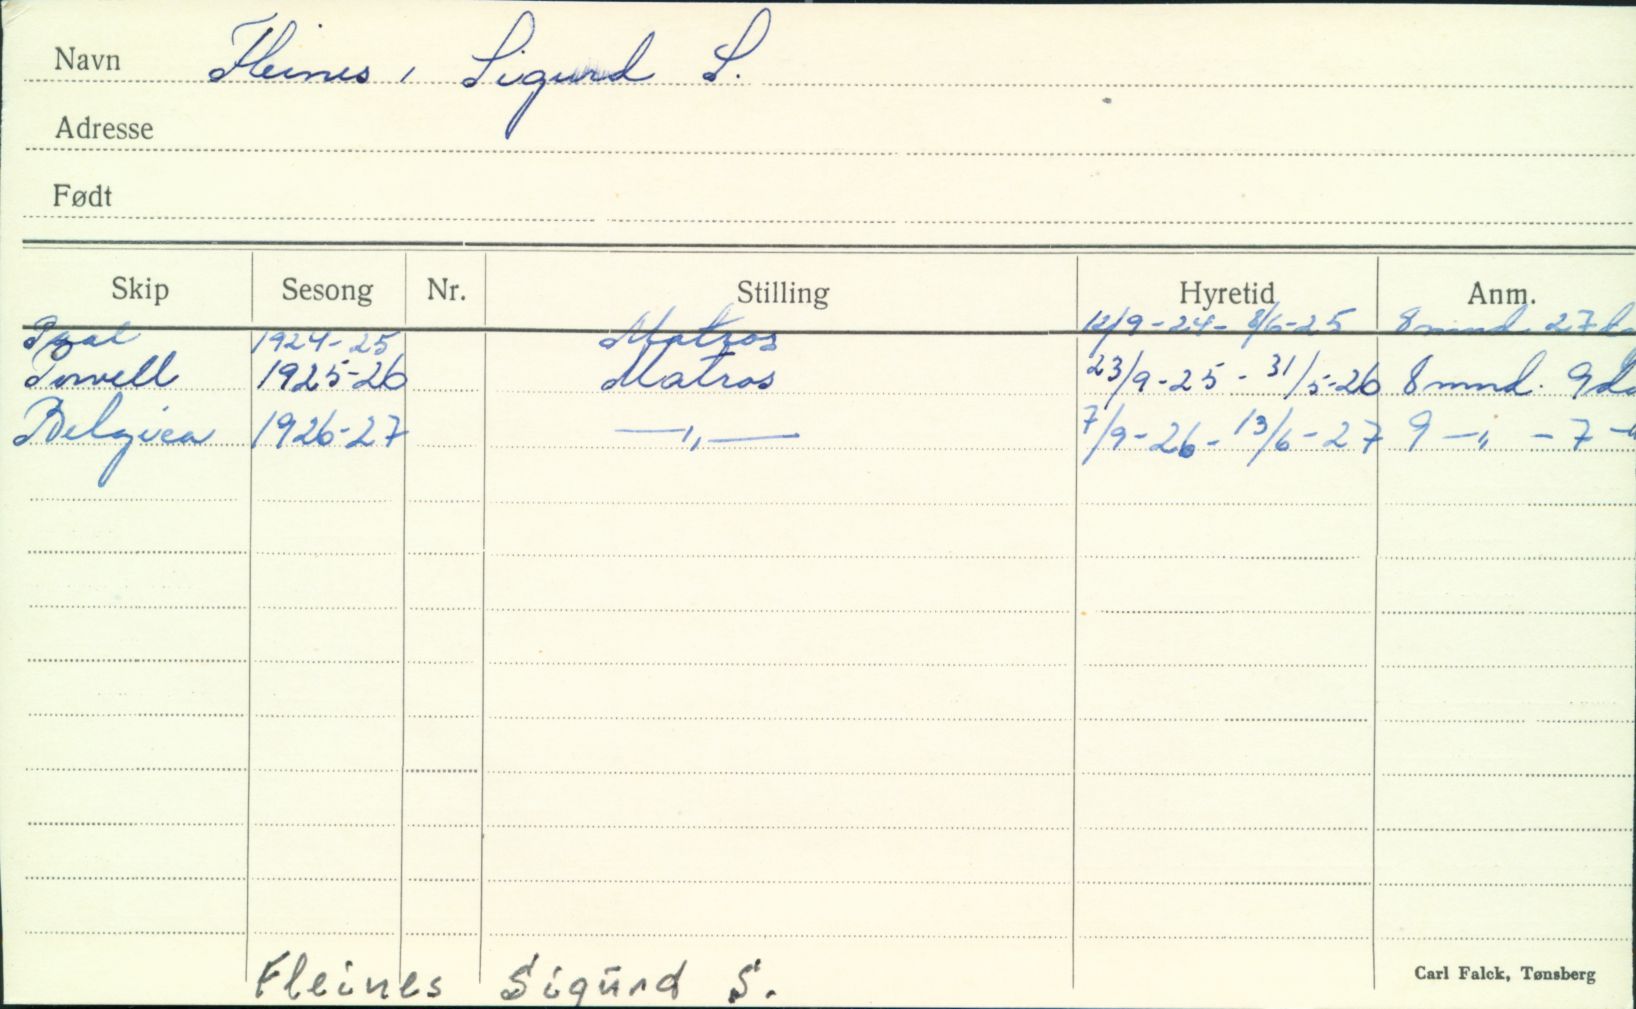 Navn Fleines, Sigurd S.
Adresse
Født
Skip Sesong Nr. Stilling Hyretid Anm.
1924-25 Matros 12/9-24- 8/6-25 8 mnd. 27 da
Powell 1925-26 Matros 23/9-25 - 31/5-26 8 mnd. 9 da
Belgica 1926-27 —"— 7/9-26 - 13/6-27 9 —"— 7 —"
Fleines Sigurd S.
Carl Falck, Tønsberg